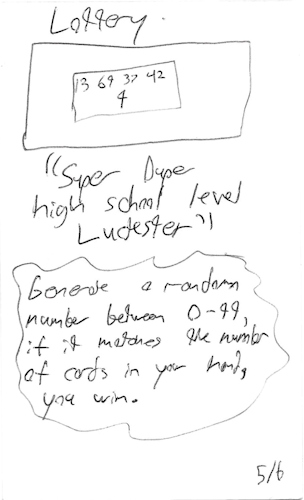 Lottery
13 69 37 42
4
"Super Dupe
high school level
Luckster"
Generate a random
number between 0-99,
if it matches the number
of cards in your hand,
you win.
5/6